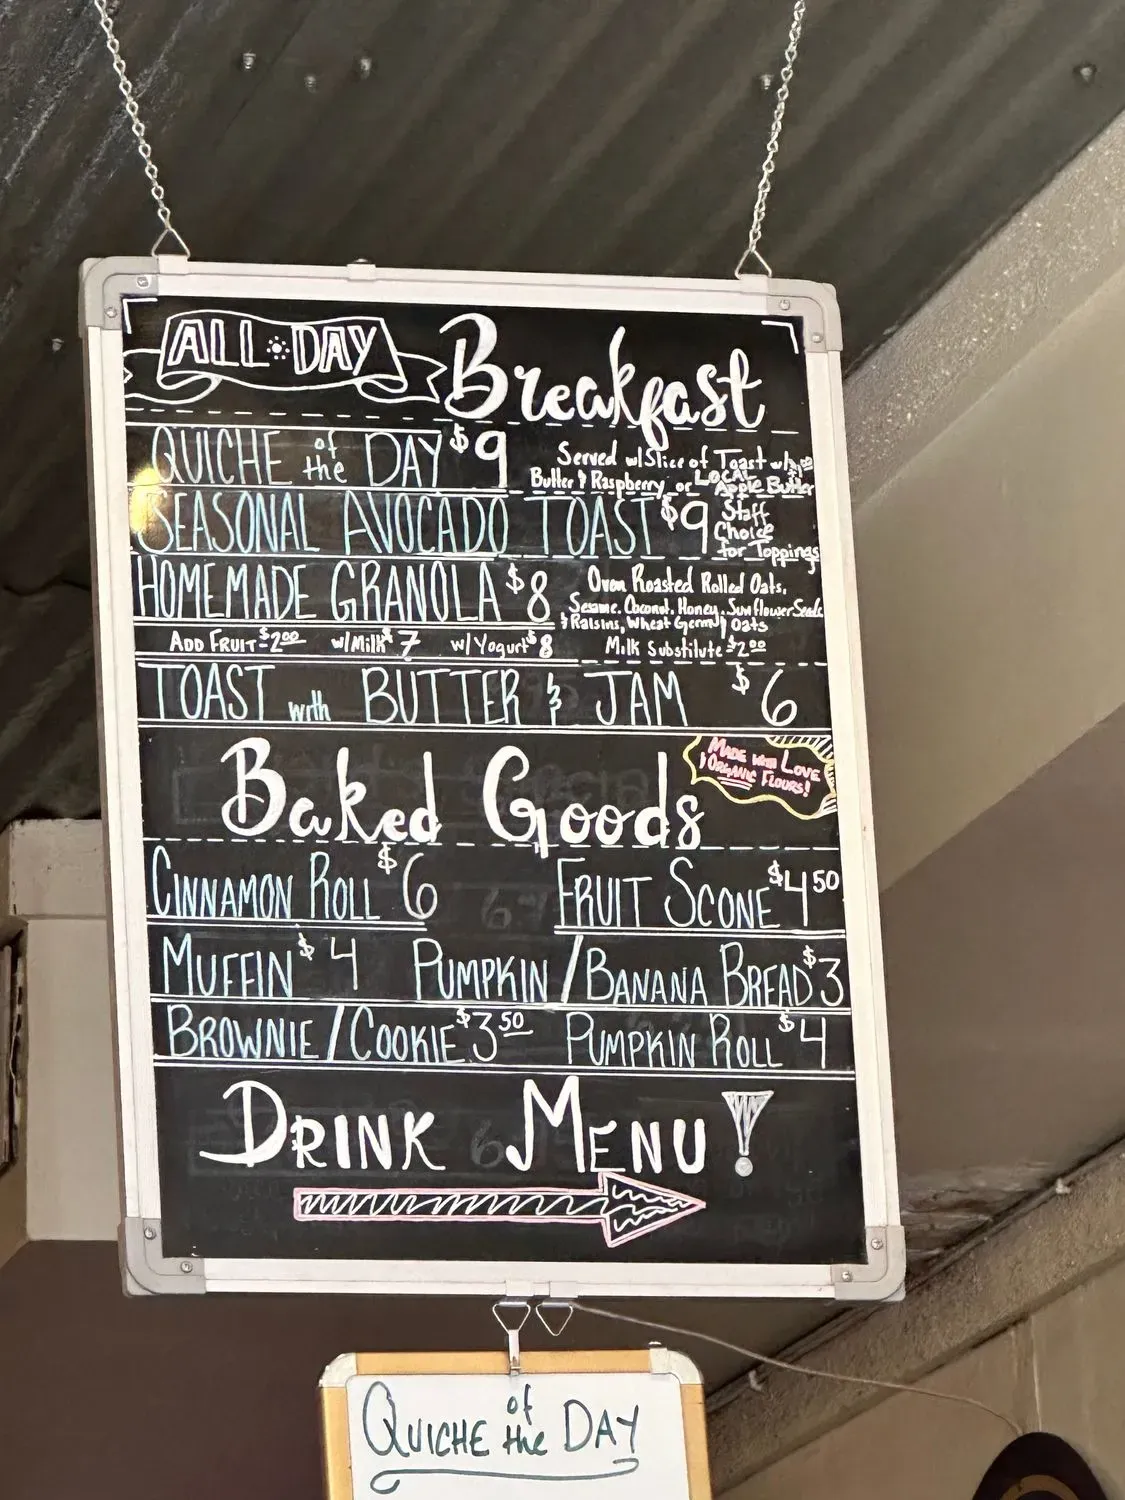 ALL DAY Breakfast
QUICHE of the DAY $9
Served w/Slice of Toast w/
Butter & Raspberry or LOCAL Apple Butter
SEASONAL AVOCADO TOAST $9
Staff
Choice
for Toppings
HOMEMADE GRANOLA $8
Oven Roasted Rolled Oats,
Sesame, Coconut, Honey, Sunflower Seeds
& Raisins, Wheat Germ, Oats
ADD FRUIT $2.00 w/Milk $7 w/Yogurt $8
Milk Substitute $2.00
TOAST with BUTTER & JAM $6
Baked Goods
MADE WITH LOVE
& ORGANIC FLOURS!
CINNAMON ROLL $6 FRUIT SCONE $4.50
MUFFIN $4 PUMPKIN/BANANA BREAD $3
BROWNIE/COOKIE $3.50 PUMPKIN ROLL $4
DRINK MENU!
QUICHE of the DAY